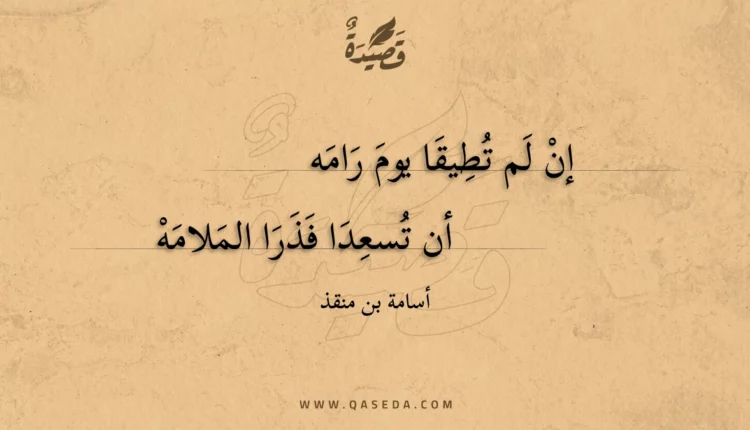 قَصِيْدَةٌ
إنْ لَم تُطِيقَا يومَ رَامَه
أن تُسعِدَا فَذَرَا المَلامَهْ
أسامة بن منقذ
WWW.QASEDA.COM